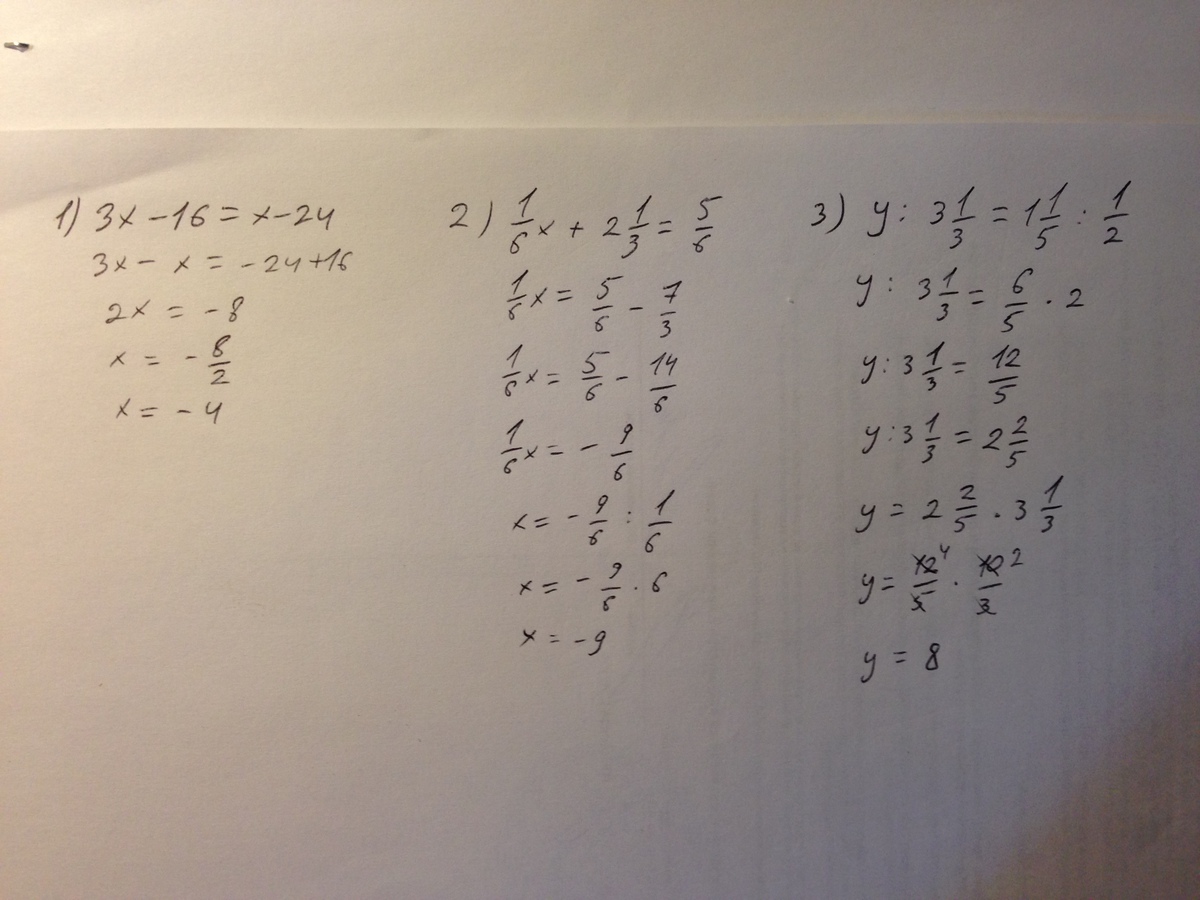 1) 3x - 16 = x - 24
3x - x = - 24 + 16
2x = - 8
x = - 8/2
x = - 4
2) 1/6 x + 2 1/3 = 5/6
1/6 x = 5/6 - 7/3
1/6 x = 5/6 - 14/6
1/6 x = - 9/6
x = - 9/6 : 1/6
x = - 9/6 · 6
x = - 9
3) y : 3 1/3 = 1 1/5 : 1/2
y : 3 1/3 = 6/5 · 2
y : 3 1/3 = 12/5
y : 3 1/3 = 2 2/5
y = 2 2/5 · 3 1/3
y = 12 4/5 · 10 2/3
y = 8